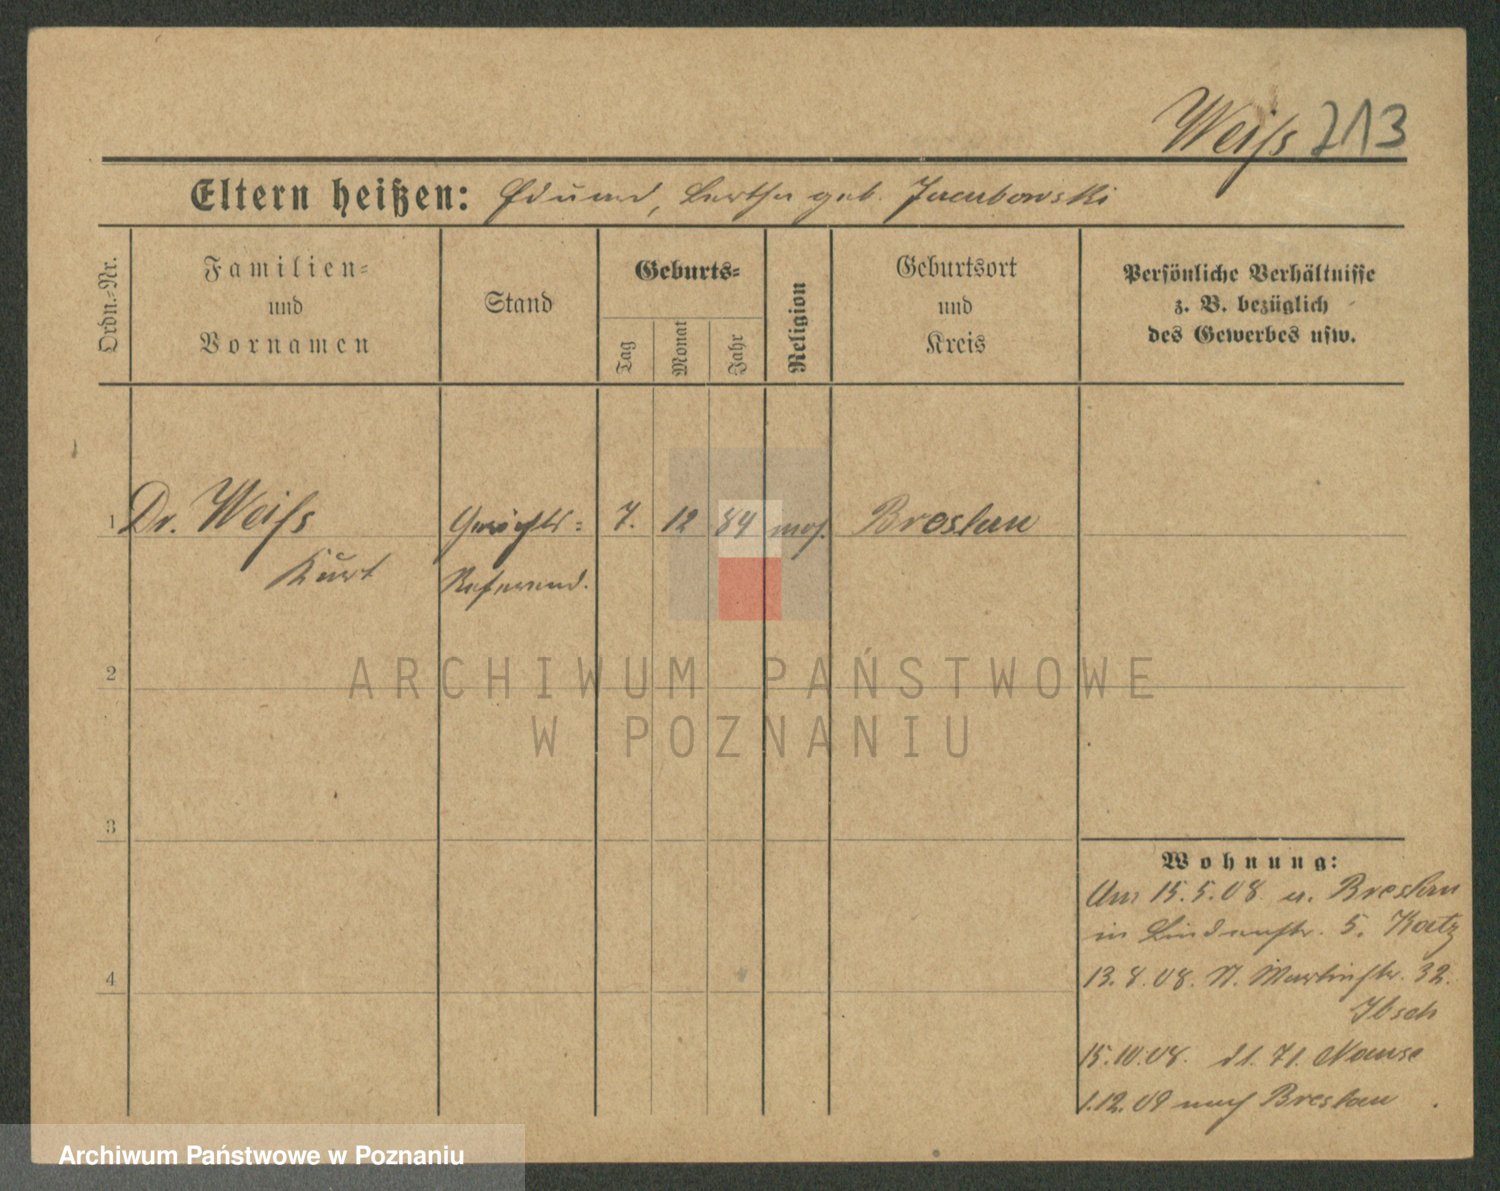 Weiſs 213
Eltern heißen: Eduard, Bertha geb. Jacubowski
Ordn.-Nr.
Familien-
und
Vornamen
Stand
Geburts-
Tag
Monat
Jahr
Religion
Geburtsort
und
Kreis
Persönliche Verhältnisse
z. B. bezüglich
des Gewerbes usw.
1 Dr. Weiſs Gerichts- 7. 12 84 mos. Breslau
Kurt Referend.
2
ARCHIWUM PAŃSTWOWE
W POZNANIU
3
Wohnung:
Am 15.5.08. v. Breslau
in Lindenstr. 5. Katz
4
13.8.08. St. Martinstr. 32.
Ibsch
15.10.08. d1. 71.
1.12.09 nach Breslau
Archiwum Państwowe w Poznaniu